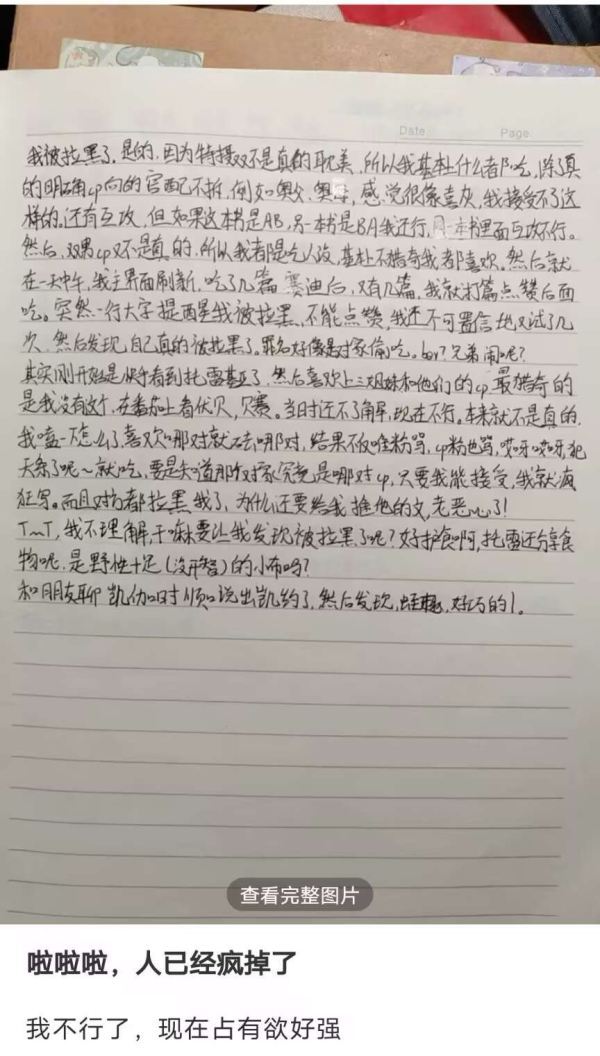 Date Page
我被拉黑了,是的,因为特摄又不是真的耽美,所以我基本上什么都吃,除了真
的明确cp向的官配不拆,例如奥父奥母,感觉很像喜灰,我接受不了这
样的,还有互攻,但如果这本书是AB,另一本书是BA我还行,同一本书里面互攻不行。
然后,双男cp又不是真的,所以我都是吃人设,基本上不猎奇我都喜欢。然后就
在一天中午,我主界面刷新,吃了几篇赛迪后,又有几篇,我就打篇点赞后面
吃。突然一行大字提醒是我被拉黑,不能点赞,我还不可置信地又试了几
次,然后发现自己真的被拉黑了。罪名好像是对家偷吃。bui?兄弟闹呢?
其实刚开始是快手看到托雷基亚了,然后喜欢上三姐妹和他们的cp,最猎奇的
是我没有这个,在番茄上看伏贝,贝赛。当时还不了解,现在不行。本来就不是真的,
我嗑一下怎么了,喜欢哪对就去哪对,结果不仅唯粉骂,cp粉也骂,哎呀哎呀犯
天条了呢~就吃,要是知道那个对家究竟是哪对cp,只要我能接受,我就疯
狂写。而且对方都拉黑我了,为什么还要给我推他的文,老恶心了!
TmT,我不理解,干嘛要让我发现被拉黑了呢?好护食啊,托雷还分享食
物呢,是野性十足(没开智)的小布吗?
和朋友聊凯伽时顺口说出凯约了,然后发现,蛙趣,好巧的1。
查看完整图片
啦啦啦，人已经疯掉了
我不行了，现在占有欲好强